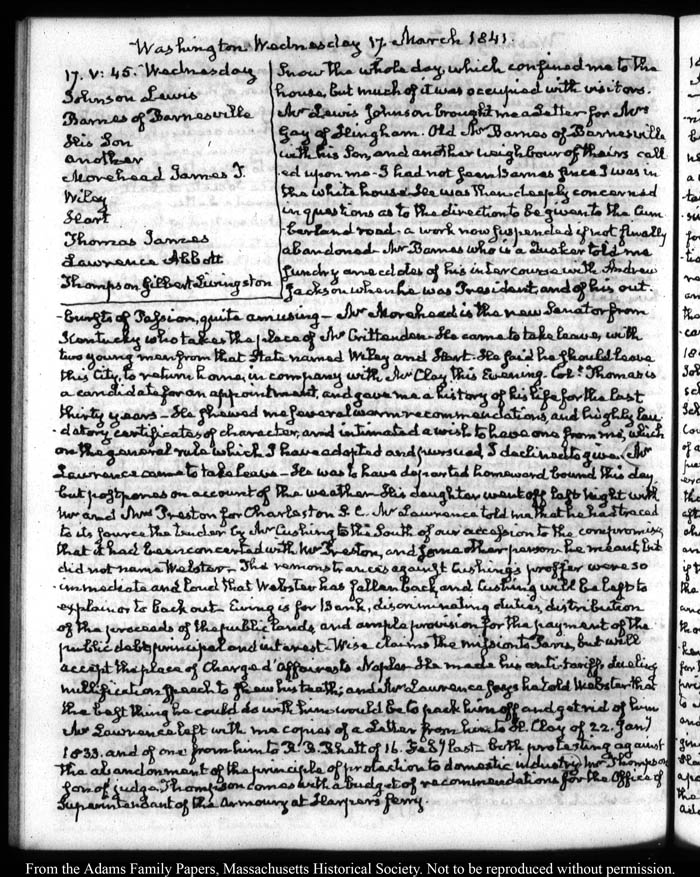 Washington Wednesday 17. March 1841.
17. V: 45. Wednesday
Johnson Lewis
Barnes of Barnesville
His Son
another
Morehead James T.
Wiley
Hart
Thomas James
Lawrence Abbott
Thompson Gilbert Livingston
Snow the whole day, which confined me to the
house, but much of it was occupied with visitors.
Mr Lewis Johnson brought me a Letter for Mrs
Gay of Hingham. Old Mr Barnes of Barnesville
with his Son, and another neighbour of theirs call
ed upon me. I had not seen Barnes since I was in
the white house. He was then deeply concerned
in questions as to the direction to be given to the Cum
-berland road. a work now suspended if not finally
abandoned. Mr Barnes who is a Quaker told me
sundry anecdotes of his intercourse with Andrew
Jackson when he was President, and of his out.
-bursts of Passion, quite amusing— Mr Morehead is the new Senator from
Kentucky who takes the place of Mr Crittenden. He came to take leave, with
two young men from that State named Wiley and Hart. He said he should leave
this City, to return home, in company with Mr Clay, this Evening. Coll. Thomas is
a candidate for an appointment, and gave me a history of his life for the last
thirty years— He shewed me several warm recommendations, and highly lau
-datory certificates of character, and intimated a wish to have one from me, which
on the general rule which I have adopted and pursued, I declined to give. Mr
Lawrence came to take leave— He was to have departed homeward bound this day
but postpones on account of the weather. His daughter went off last Night with
Mr and Mrs Preston for Charleston S. C. Mr Lawrence told me that he had traced
to its source the tender by Mr Cushing to the South of our accession to the compromise,
that it had been concerted with Mr Preston, and some other person he meant but
did not name Webster— The remonstrances against Cushing's proffer were so
immediate and loud that Webster has fallen back, and Cushing will be left to
explain or to back out— Ewing is for Bank, discriminating duties, distribution
of the proceeds of the public lands, and ample provision for the payment of the
public debt, principal and interest— Wise claims the mission to Paris, but will
accept the place of Chargé d'Affaires to Naples— He made his anti-tariff, dueling
nullification speech to shew his teeth; and Mr Lawrence says he told Webster that
the best thing he could do with him would be to pack him off and get rid of him
Mr Lawrence left with me copies of a Letter from him to H. Clay of 22. Jany
1833. and of one from him to R. B. Rhett of 16. Feby last— both protesting against
the abandonment of the principle of protection to domestic industry. Mr Thompson
son of Judge Thompson comes with a budget of recommendations for the Office of
Superintendant of the Armoury at Harper's ferry.
From the Adams Family Papers, Massachusetts Historical Society. Not to be reproduced without permission.